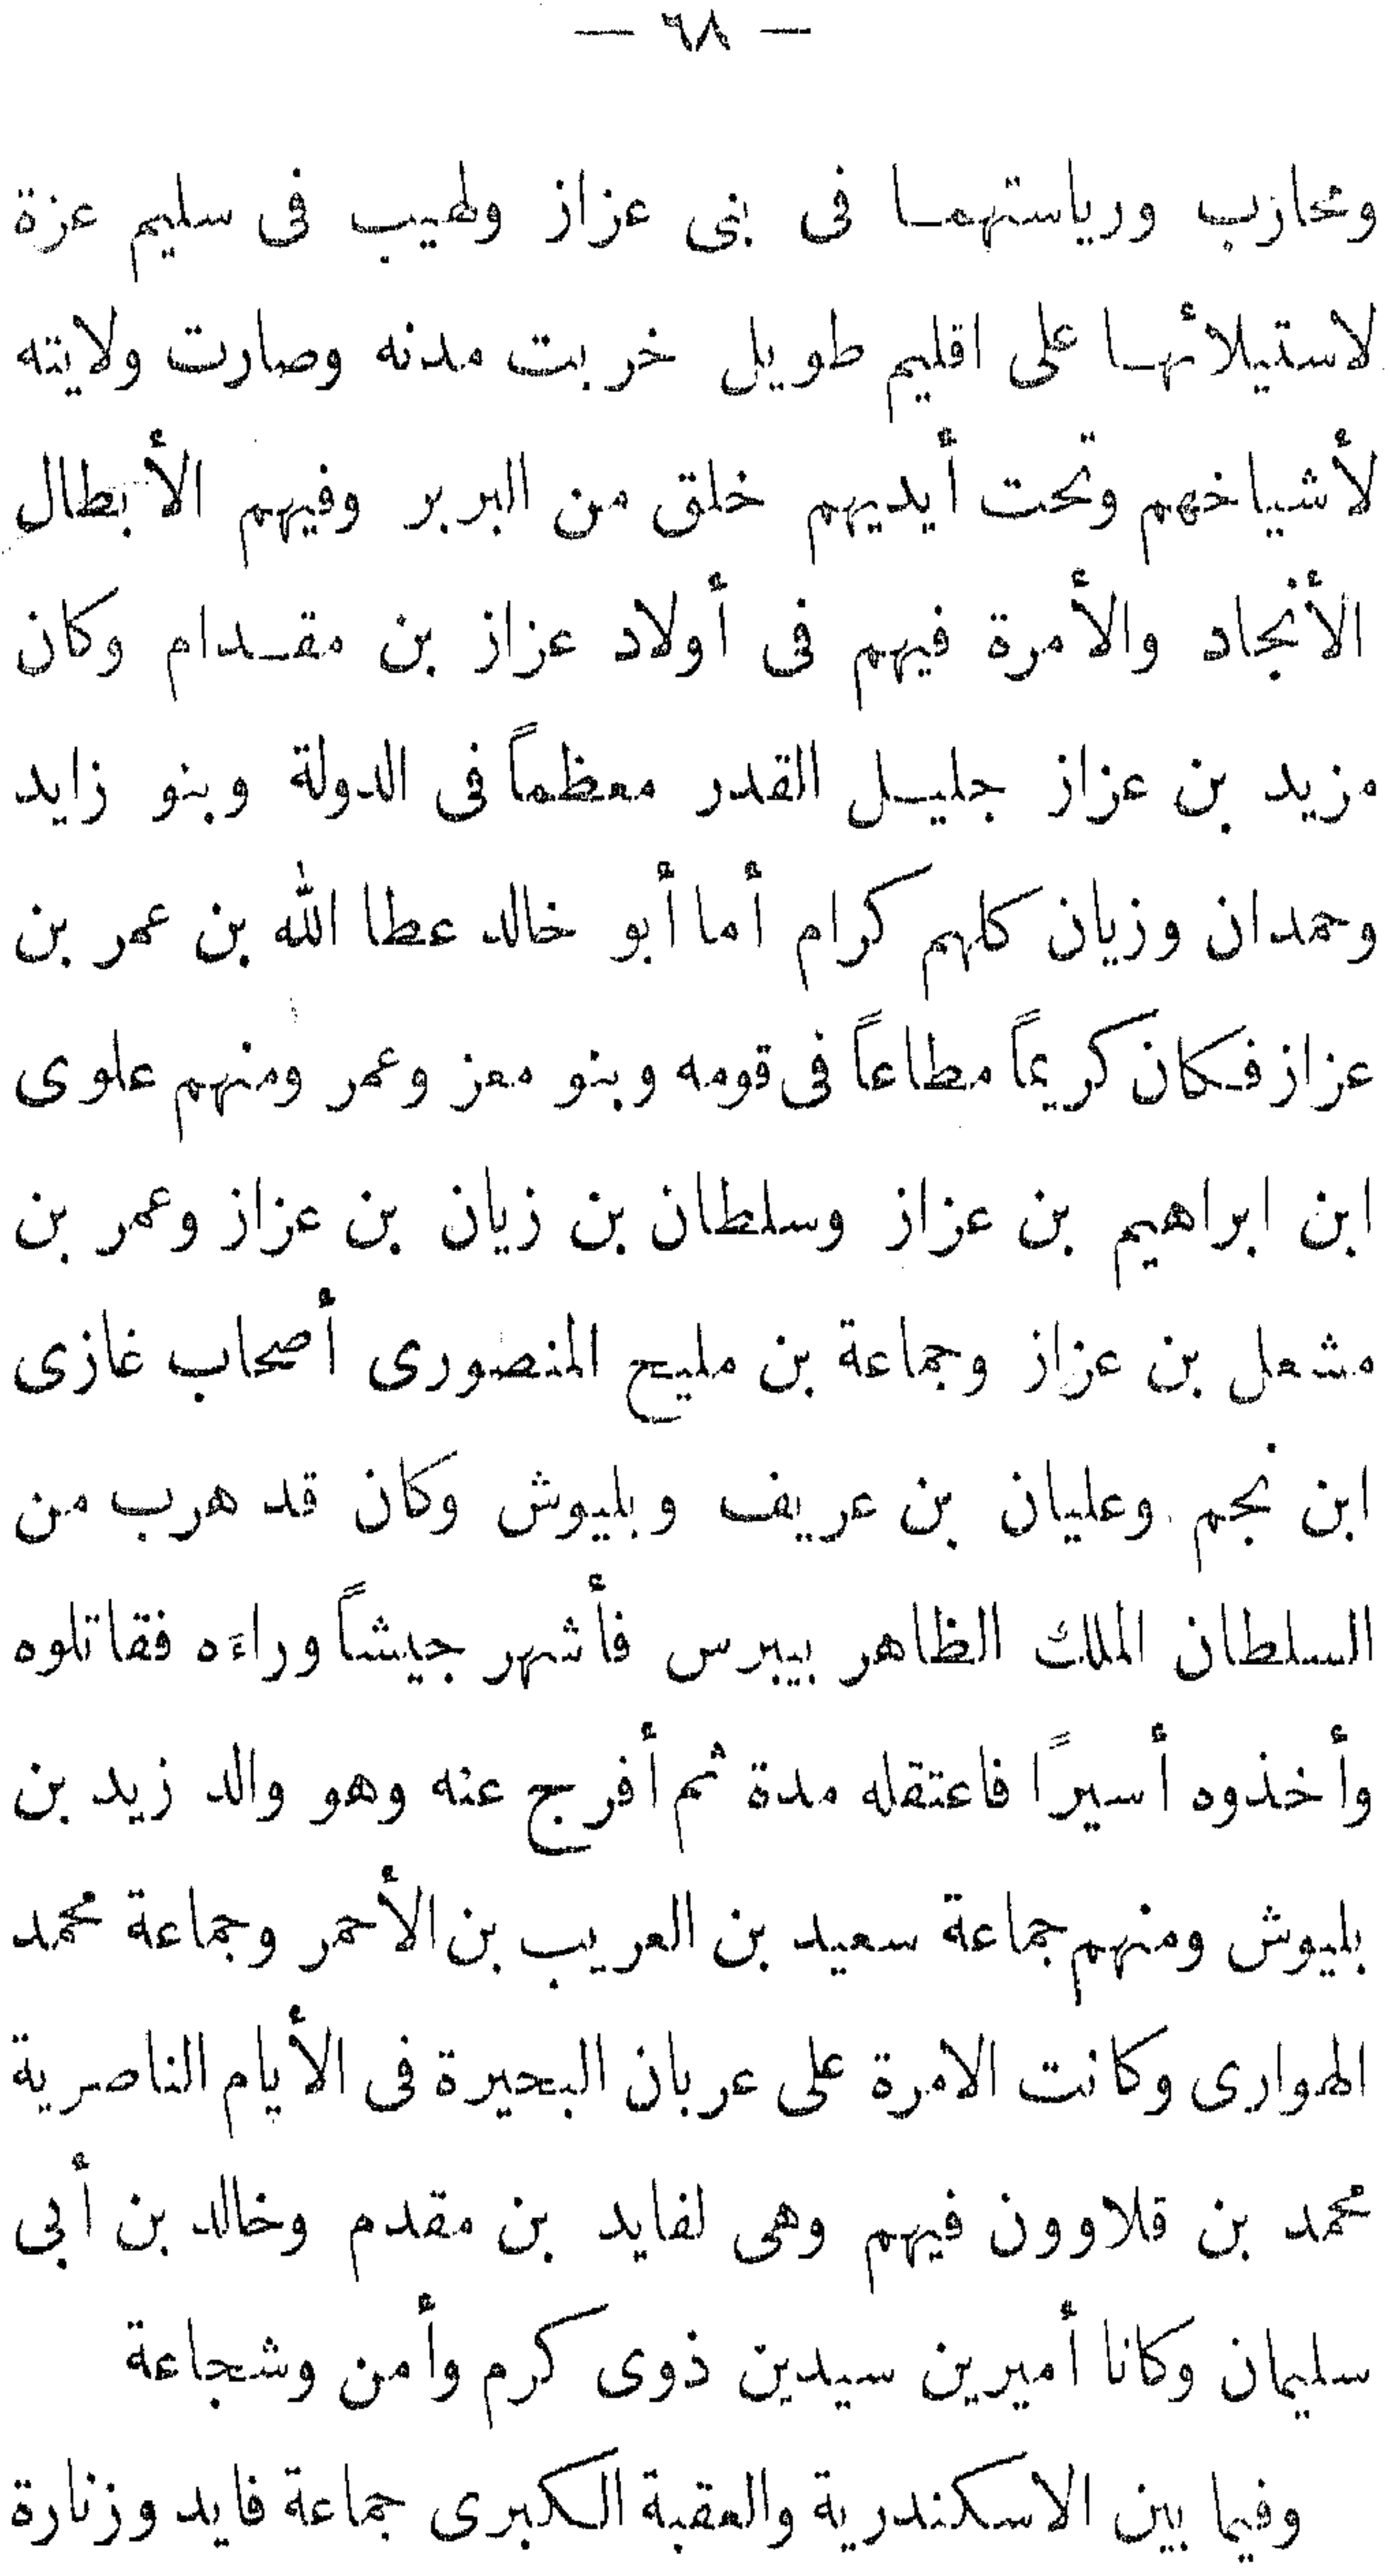 — ٦٨ —
ومحازب ورياستهما فى بنى عزاز ولهيب فى سليم عزة
لاستيلائها على اقليم طويل خربت مدنه وصارت ولايته
لأشياخهم وتحت أيديهم خلق من البربر وفيهم الأبطال
الأنجاد والأمرة فيهم فى أولاد عزاز بن مقدام وكان
مزيد بن عزاز جليل القدر معظماً فى الدولة وبنو زايد
وحمدان وزيان كلهم كرام أما أبو خالد عطا الله بن عمر بن
عزاز فكان كريماً مطاعاً فى قومه وبنو معز وعمر ومنهم علوى
ابن ابراهيم بن عزاز وسلطان بن زيان بن عزاز وعمر بن
مشعل بن عزاز وجماعة بن مليح المنصورى أصحاب غازى
ابن نجم وعليان بن عريف وبليوش وكان قد هرب من
السلطان الملك الظاهر بيبرس فأشهر جيشاً وراءه فقاتلوه
وأخذوه أسيرًا فاعتقله مدة ثم أفرج عنه وهو والد زيد بن
بليوش ومنهم جماعة سعيد بن العريب بن الأحمر وجماعة محمد
الهوارى وكانت الامرة على عربان البحيرة فى الأيام الناصرية
محمد بن قلاوون فيهم وهى لفايد بن مقدم وخالد بن أبى
سليمان وكانا أميرين سيدين ذوى كرم وأمن وشجاعة
وفيما بين الاسكندرية والعقبة الكبرى جماعة فايد وزنارة